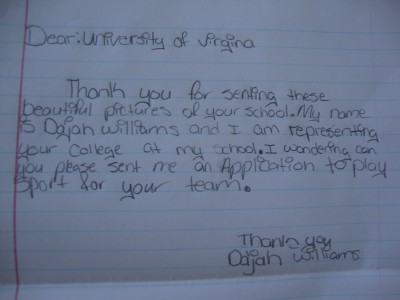 Dear:University of virgina
Thank you for senting these
beautiful pictures of your school. My name
is Dajah williams and I am representing
your College at my school. I wondering can
you please sent me an Application to play
Sport for your team.
Thank you
Dajah williams